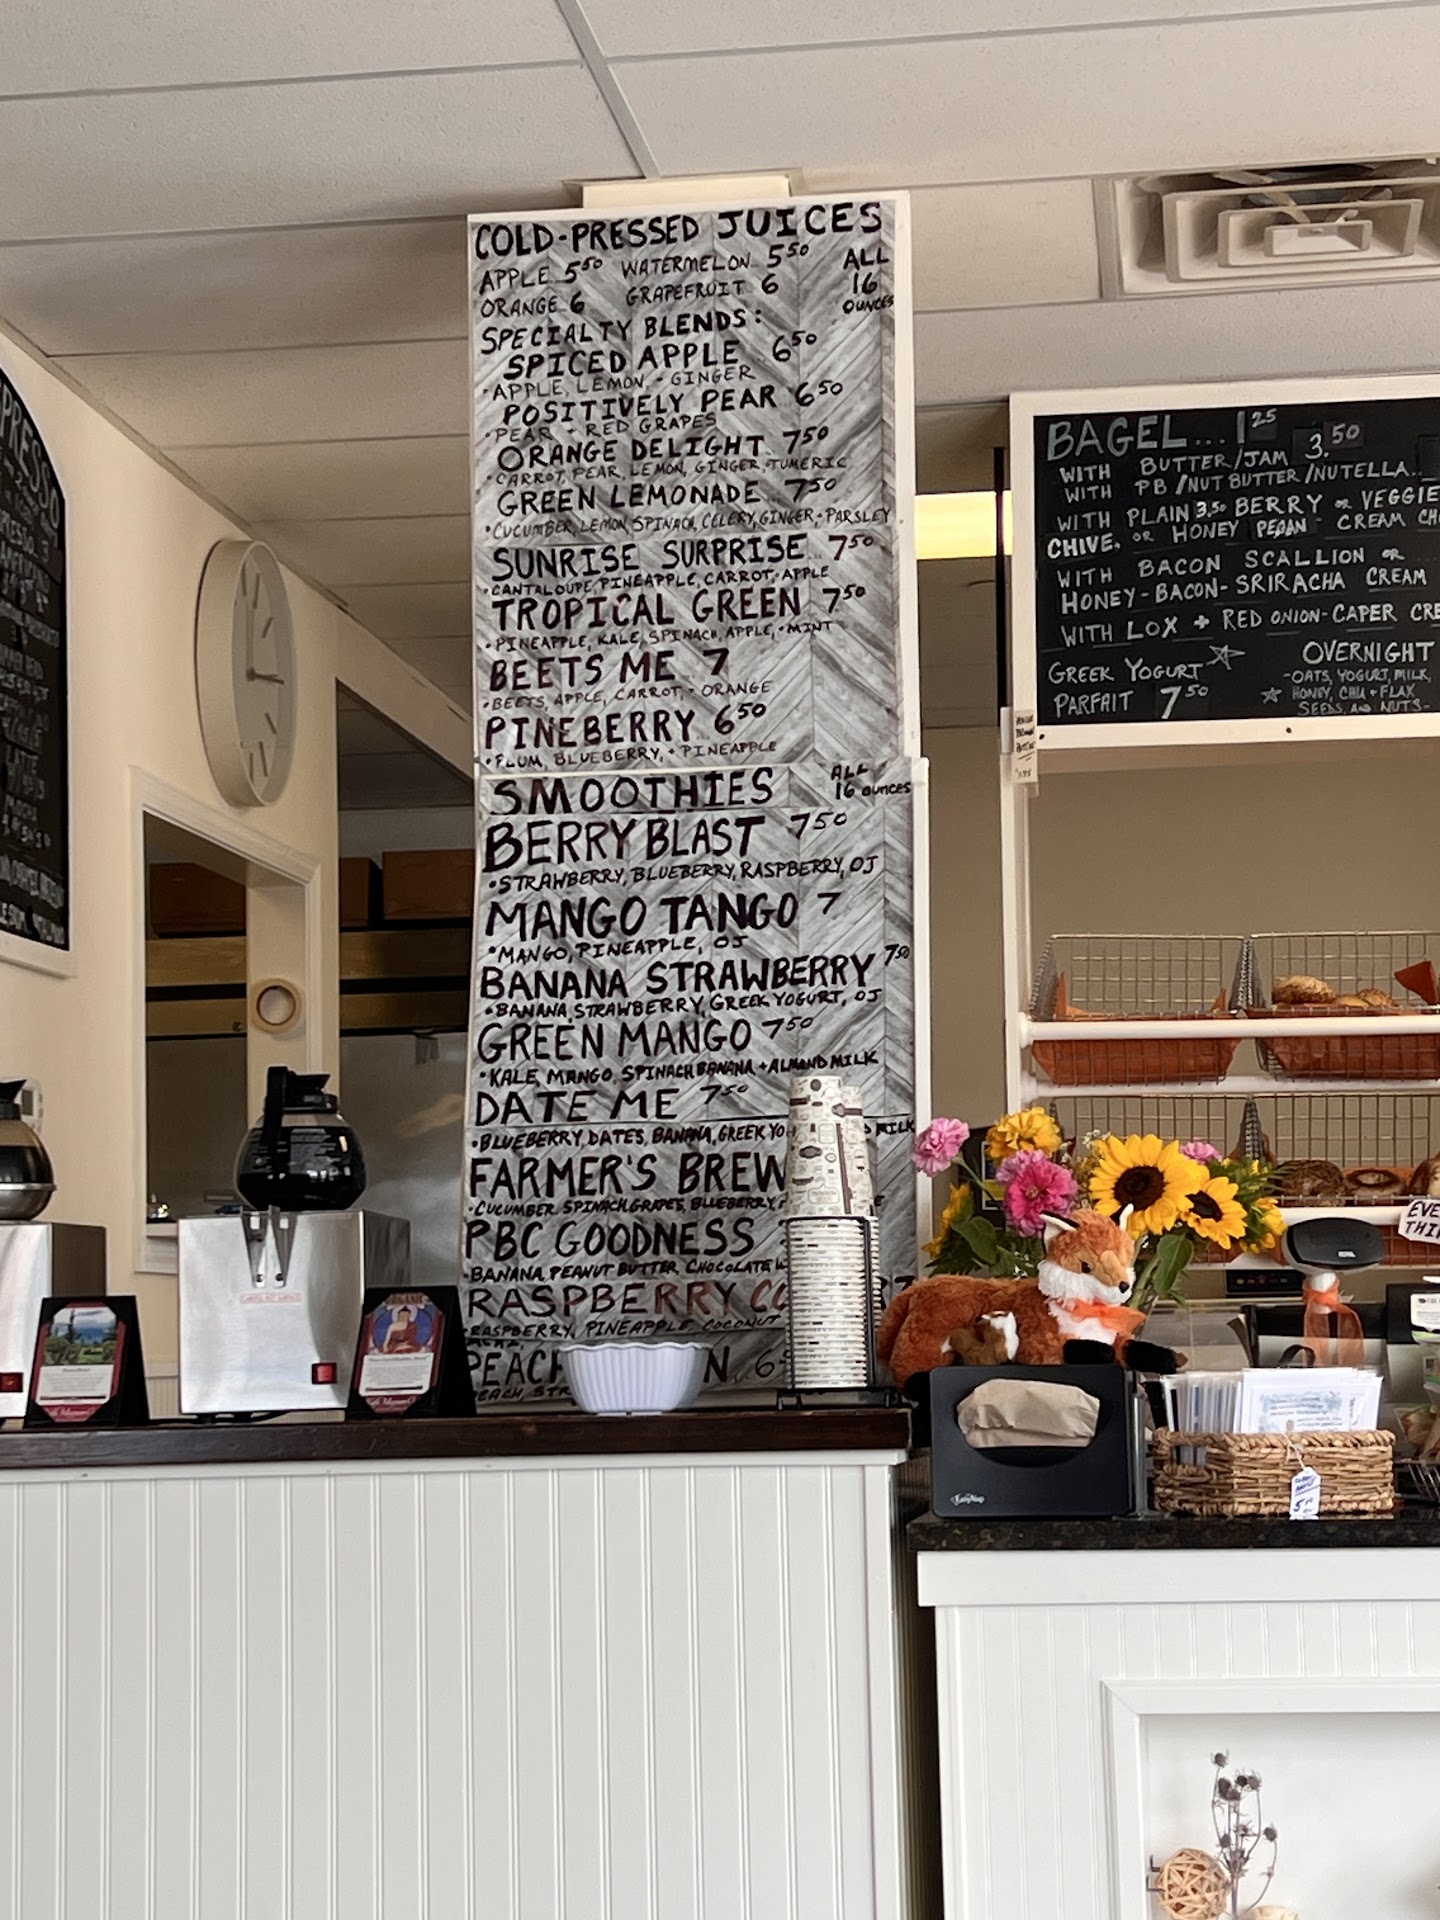 COLD-PRESSED JUICES
APPLE 5.50 WATERMELON 5.50 ALL
ORANGE 6 GRAPEFRUIT 6 16
OUNCES
SPECIALTY BLENDS:
SPICED APPLE 6.50
•APPLE, LEMON, + GINGER
POSITIVELY PEAR 6.50
•PEAR + RED GRAPES
ORANGE DELIGHT 7.50
•CARROT, PEAR, LEMON, GINGER, TUMERIC
GREEN LEMONADE 7.50
•CUCUMBER, LEMON, SPINACH, CELERY, GINGER + PARSLEY
SUNRISE SURPRISE 7.50
•CANTALOUPE, PINEAPPLE, CARROT, + APPLE
TROPICAL GREEN 7.50
•PINEAPPLE, KALE, SPINACH, APPLE, + MINT
BEETS ME 7
•BEETS, APPLE, CARROT, + ORANGE
PINEBERRY 6.50
•PLUM, BLUEBERRY, + PINEAPPLE
SMOOTHIES ALL
16 ounces
BERRY BLAST 7.50
•STRAWBERRY, BLUEBERRY, RASPBERRY, OJ
MANGO TANGO 7
•MANGO, PINEAPPLE, OJ
BANANA STRAWBERRY 7.50
•BANANA, STRAWBERRY, GREEK YOGURT, OJ
GREEN MANGO 7.50
•KALE, MANGO, SPINACH BANANA + ALMOND MILK
DATE ME 7.50
•BLUEBERRY, DATES, BANANA, GREEK YO MILK
FARMER'S BREW
•CUCUMBER, SPINACH, GRAPES, BLUEBERRY,
PBC GOODNESS
•BANANA, PEANUT BUTTER, CHOCOLATE
RASPBERRY CO 7
•RASPBERRY, PINEAPPLE, COCONUT
PEACH N 6
PEACH, STR
BAGEL... 1.25
WITH BUTTER/JAM 3.50
WITH PB/NUT BUTTER/NUTELLA..
WITH PLAIN 3.50 BERRY OR VEGGIE
CHIVE, OR HONEY PECAN CREAM CH
WITH BACON SCALLION OR
HONEY-BACON-SRIRACHA CREAM
WITH LOX + RED ONION-CAPER CRE
GREEK YOGURT
PARFAIT 7.50
OVERNIGHT
-OATS, YOGURT, MILK,
HONEY, CHIA + FLAX
SEEDS, AND NUTS-
LATTE
EVE
THI
EasyNap